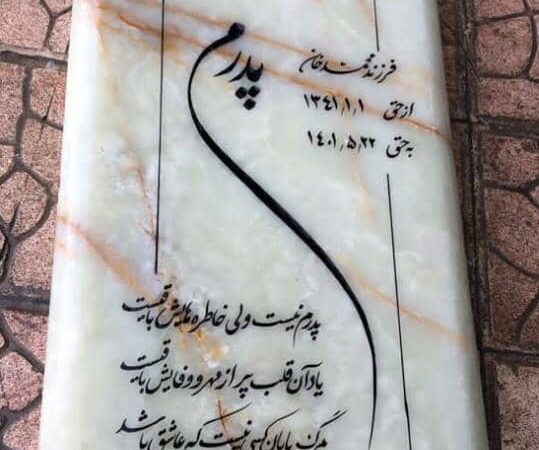 پدرم
فرزند محمد خان
از حق ۱۳۴۱٫۱٫۱
به حق ۱۴۰۱٫۵٫۲۲
پدرم نیست ولی خاطره هایش باقیست
یاد آن قلب پر از مهر و وفایش باقیست
مرگ پایان کسی نیست که عاشق باشد